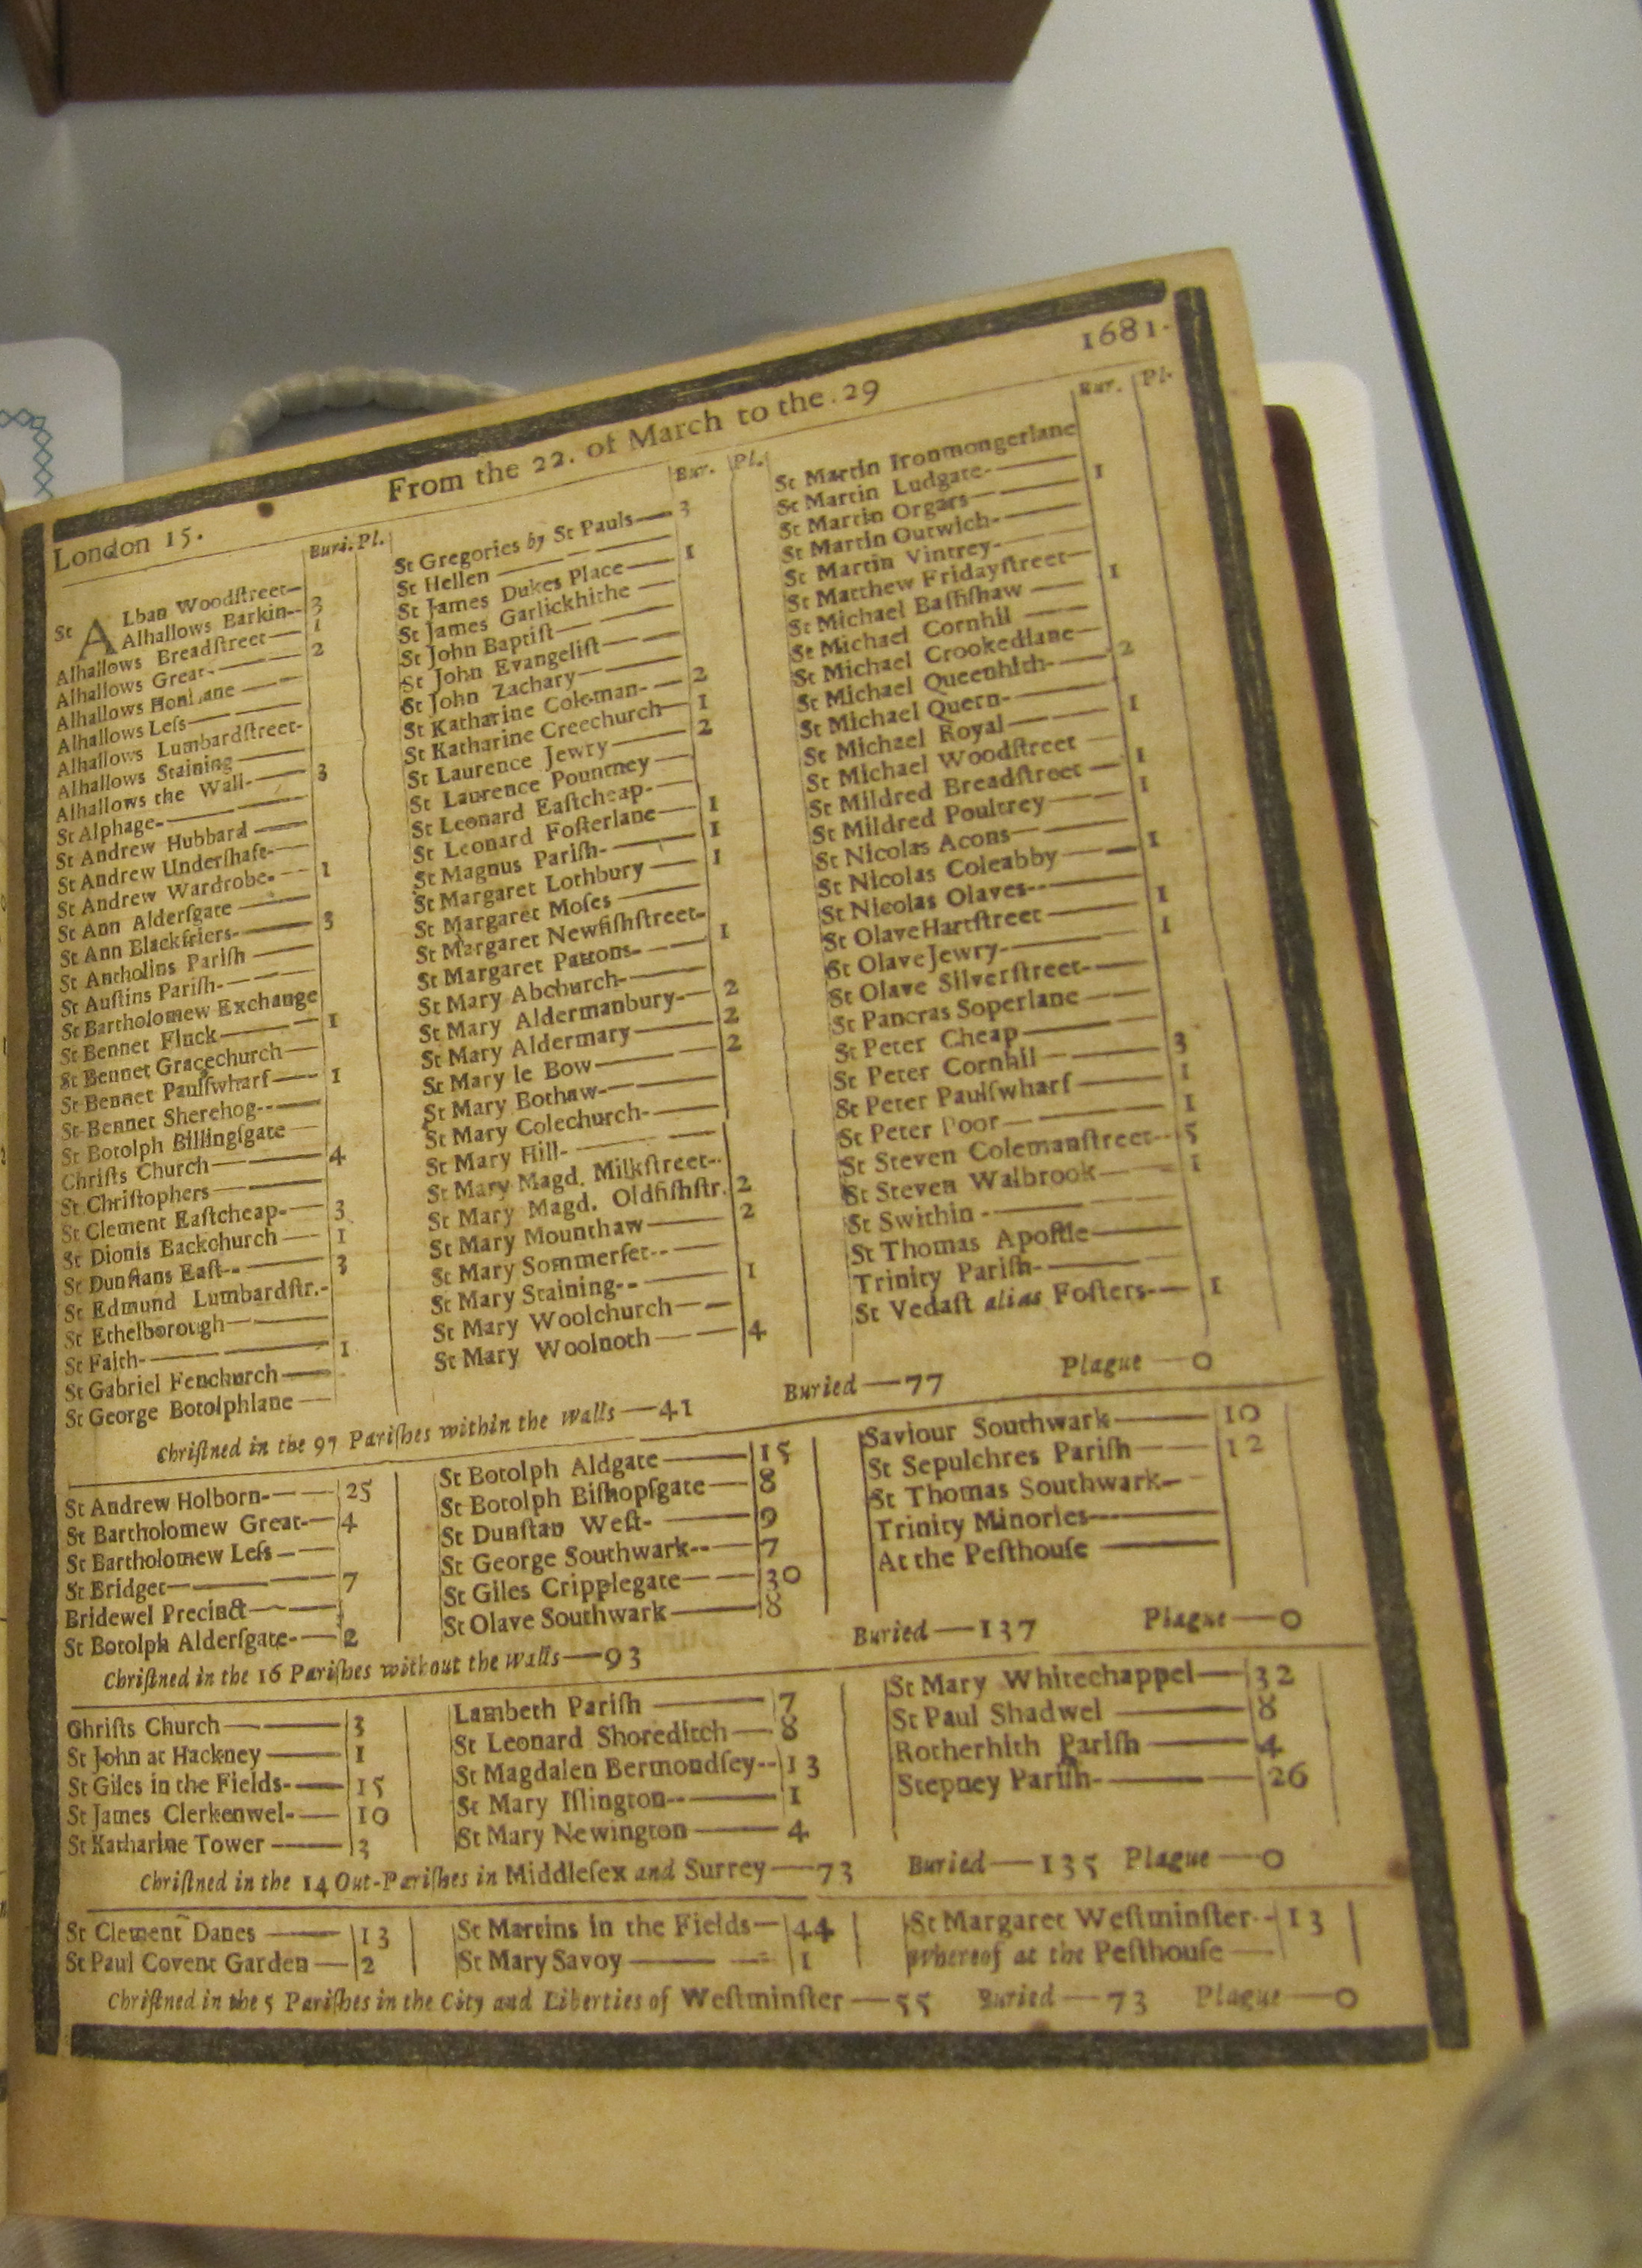 London 15. From the 22. of March to the 29 1681.
Buri. Pl.
St ALban Woodſtreet—
Alhallows Barkin-- 3
Alhallows Breadſtreet — 1
Alhallows Great- —— 2
Alhallows HonLane ——
Alhallows Leſs—— ——
Alhallows Lumbardſtreet-
Alhallows Staining——
Alhallows the Wall- —— 3
St Alphage- —— ——
St Andrew Hubbard ——
St Andrew Underſhaft-——
St Andrew Wardrobe- —— 1
St Ann Alderſgate ——
St Ann Blackfriers- —— 3
St Antholins Pariſh ——
St Auſtins Pariſh- —— ——
St Bartholomew Exchange
St Bennet Finck—— —— 1
St Bennet Gracechurch——
St Bennet Paulſwharf —— 1
St Bennet Sherehog-- ——
St Botolph Billingſgate ——
Chriſts Church —— —— 4
St Chriſtophers —— ——
St Clement Eaſtcheap- —— 3
St Dionis Backchurch —— 1
St Dunſtans Eaſt-- —— 3
St Edmund Lumbardſtr.-
St Ethelborough—— ——
St Faith- —— —— 1
St Gabriel Fenchurch——
St George Botolphlane ——
Bur. Pl.
St Gregories by St Pauls— 3
St Hellen —— —— ——
St James Dukes Place—— 1
St James Garlickhithe ——
St John Baptiſt—— ——
St John Evangeliſt —— ——
St John Zachary—— ——
St Katharine Coleman- —— 2
St Katharine Creechurch— 1
St Laurence Jewry —— 2
St Laurence Pountney ——
St Leonard Eaſtcheap- ——
St Leonard Foſterlane—— 1
St Magnus Pariſh- —— 1
St Margaret Lothbury —— 1
St Margaret Moſes ——
St Margaret Newfiſhſtreet-
St Margaret Pattons- —— 1
St Mary Abchurch- ——
St Mary Aldermanbury-— 2
St Mary Aldermary—— 2
St Mary le Bow—— —— 2
St Mary Bothaw- —— ——
St Mary Colechurch- ——
St Mary Hill- —— ——
St Mary Magd. Milkſtreet-
St Mary Magd. Oldfiſhſtr. 2
St Mary Mounthaw —— 2
St Mary Sommerſet-- ——
St Mary Staining-- —— 1
St Mary Woolchurch— —
St Mary Woolnoth —— — 4
Bur. Pl.
St Martin Ironmongerlane
St Martin Ludgate- —— 1
St Martin Orgars— ——
St Martin Outwich- ——
St Martin Vintrey- ——
St Matthew Fridayſtreet— 1
St Michael Baſſiſhaw ——
St Michael Cornhil ——
St Michael Crookedlane— 2
St Michael Queenhith- ——
St Michael Quern- —— 1
St Michael Royal —— ——
St Michael Woodſtreet — 1
St Mildred Breadſtreet — 1
St Mildred Poultrey ——
St Nicolas Acons— —— 1
St Nicolas Coleabby —— —
St Nicolas Olaves-- —— 1
St Olave Hartſtreet —— 1
St Olave Jewry- —— ——
St Olave Silverſtreet- ——
St Pancras Soperlane ——
St Peter Cheap—— ——
St Peter Cornhil— —— 3
St Peter Paulſwharf —— 1
St Peter Poor—— —— 1
St Steven Colemanſtreet-- 5
St Steven Walbrook —— 1
St Swithin - —— ——
St Thomas Apoſtle——
Trinity Pariſh- —— ——
St Vedaſt alias Foſters-— 1
Chriſtned in the 97 Pariſhes within the Walls —41 Buried —77 Plague —0
St Andrew Holborn- —— 25
St Bartholomew Great-— 4
St Bartholomew Leſs — ——
St Bridget— —— —— 7
Bridewel Precinct— ——
St Botolph Alderſgate- — 2
St Botolph Aldgate —— 15
St Botolph Biſhopſgate — 8
St Dunſtan Weſt- —— 9
St George Southwark-- — 7
St Giles Cripplegate— — 30
St Olave Southwark —— 8
Saviour Southwark —— 10
St Sepulchres Pariſh —— 12
St Thomas Southwark— -
Trinity Minories-- ——
At the Peſthouſe ——
Chriſtned in the 16 Pariſhes without the Walls —93 Buried —137 Plague —0
Chriſts Church — —— 3
St John at Hackney —— 1
St Giles in the Fields- —— 15
St James Clerkenwel- — 10
St Katharine Tower —— 3
Lambeth Pariſh —— 7
St Leonard Shoreditch — 8
St Magdalen Bermondſey-- 13
St Mary Iſlington-- —— 1
St Mary Newington —— 4
St Mary Whitechappel— 32
St Paul Shadwel —— 8
Rotherhith Pariſh —— 4
Stepney Pariſh- —— — 26
Chriſtned in the 14 Out-Pariſhes in Middleſex and Surrey —73 Buried —135 Plague —0
St Clement Danes —— 13
St Paul Covent Garden — 2
St Martins in the Fields — 44
St Mary Savoy —— — 1
St Margaret Weſtminſter-- 13
whereof at the Peſthouſe —
Chriſtned in the 5 Pariſhes in the City and Liberties of Weſtminſter —55 Buried —73 Plague —0